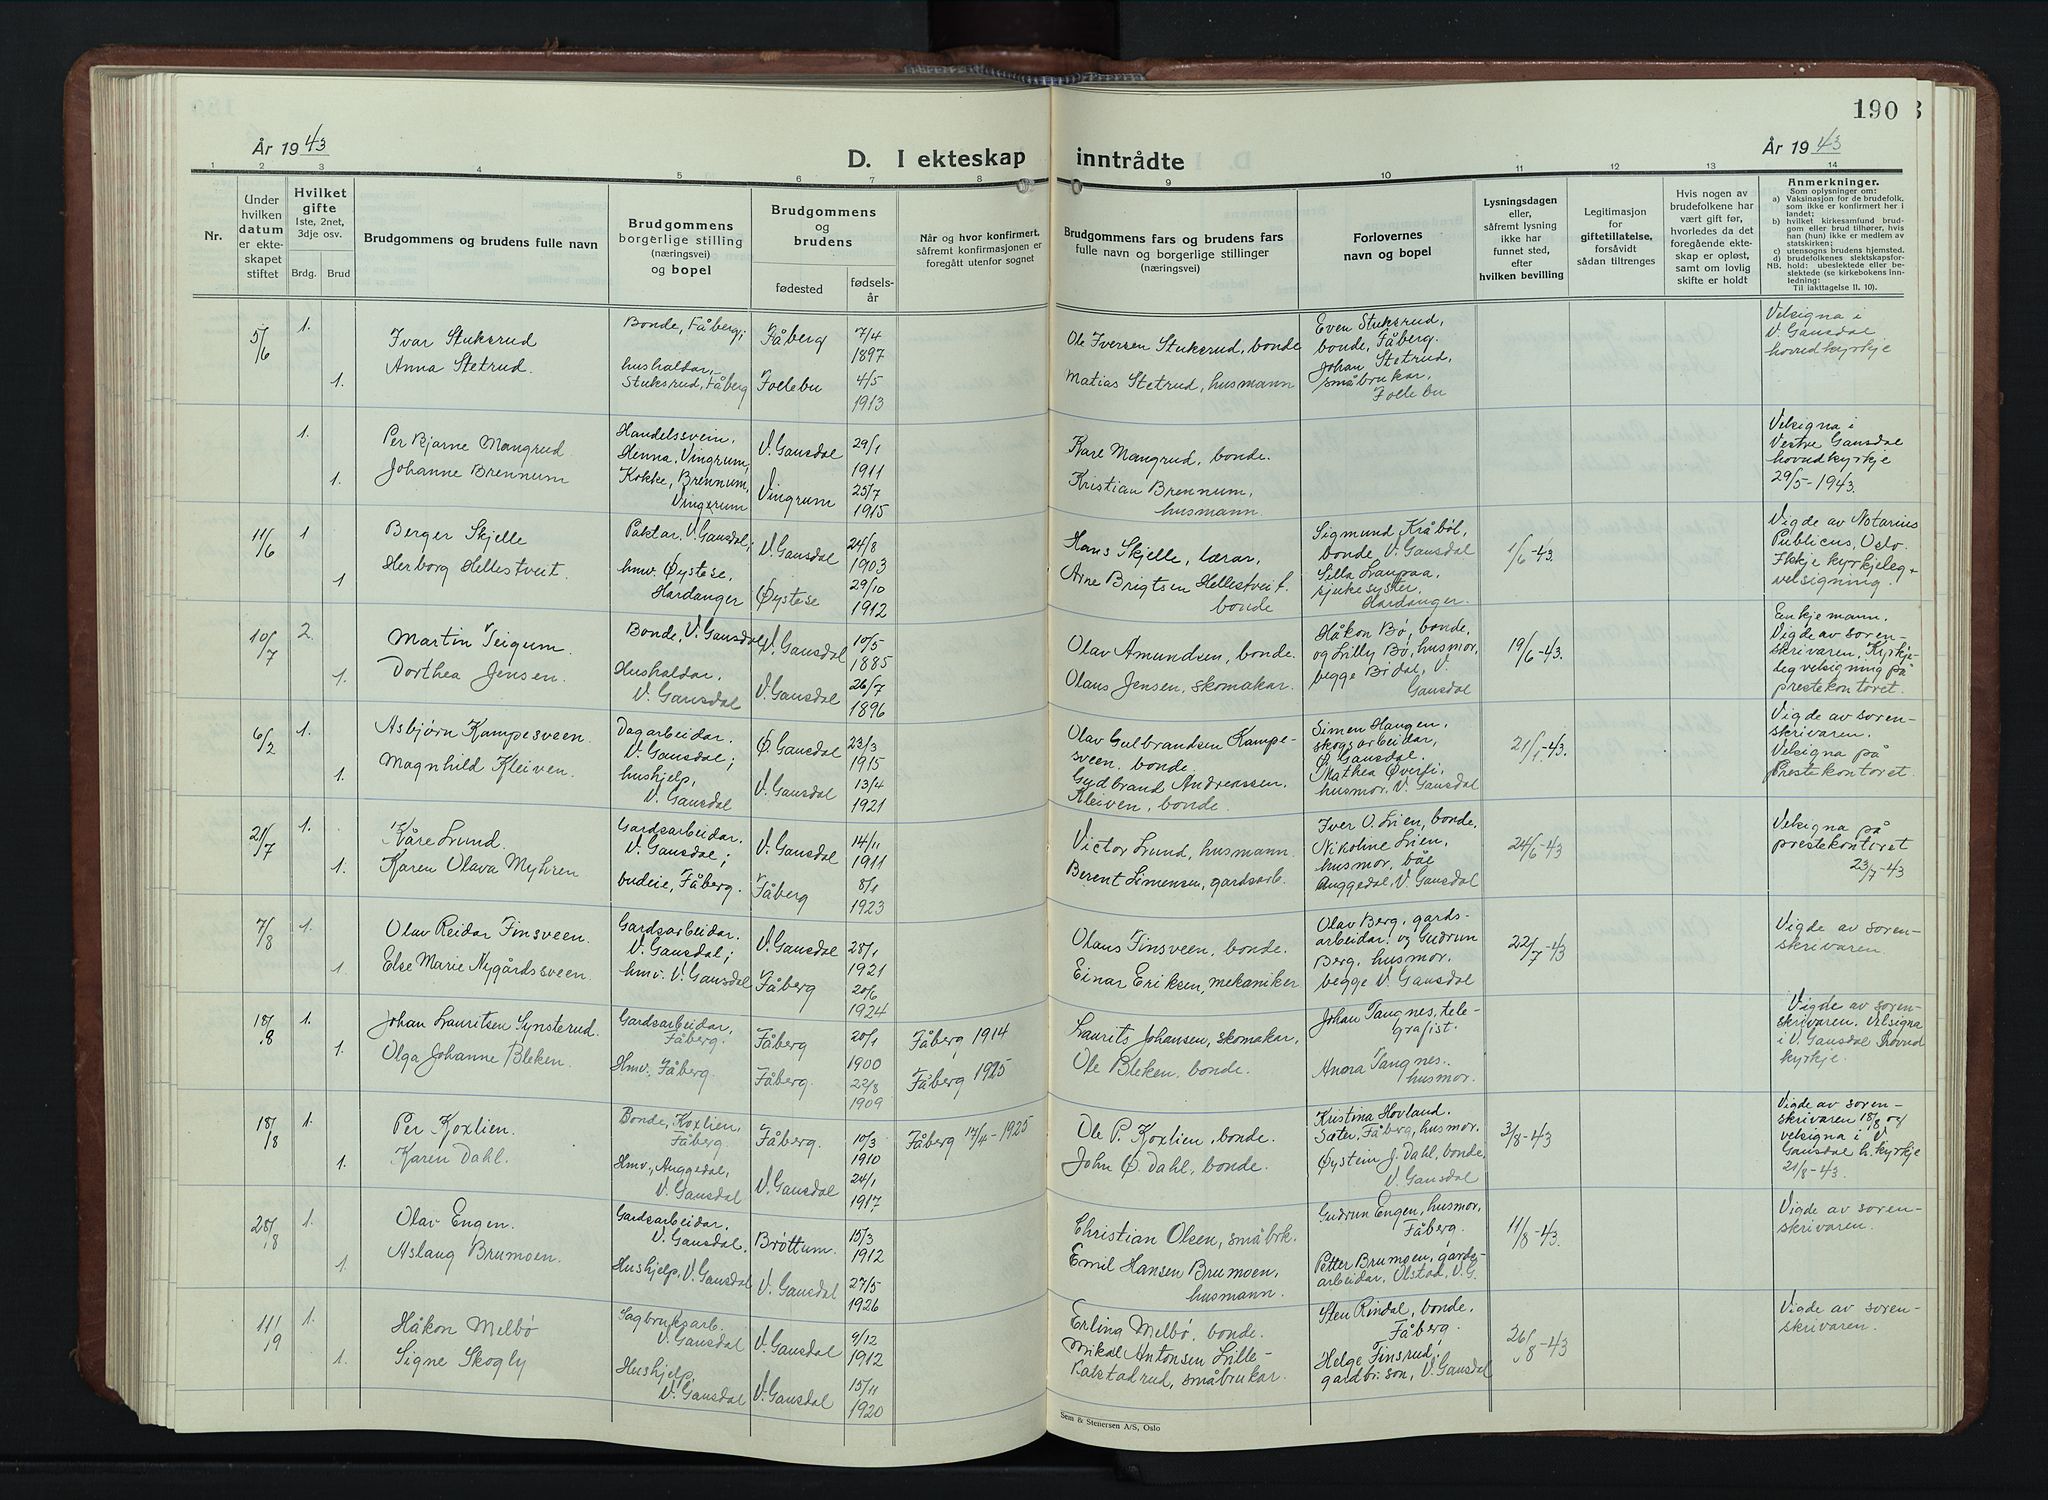 190
År 1943
D. I ekteskap inntrådte
År 1943
1 2 3 4 5 6 7 8 9 10 11 12 13 14
Nr.
Under hvilken datum er ekteskapet stiftet
Hvilket gifte
1ste, 2net, 3dje osv.
Brdg. Brud
Brudgommens og brudens fulle navn
Brudgommens borgerlige stilling (næringsvei) og bopel
Brudgommens og brudens
fødested
fødselsår
Når og hvor konfirmert, såfremt konfirmasjonen er foregått utenfor sognet
Brudgommens fars og brudens fars fulle navn og borgerlige stillinger (næringsvei)
Forlovernes navn og bopel
Lysningsdagen eller, såfremt lysning ikke har funnet sted, efter hvilken bevilling
Legitimasjon for giftetillatelse, forsåvidt sådan tiltrenges
Hvis nogen av brudefolkene har vært gift før, hvorledes da det foregående ekteskap er opløst, samt om lovlig skifte er holdt
Anmerkninger.
Som oplysninger om:
a) Vaksinasjon for de brudefolk, som ikke er konfirmert her i landet;
b) hvilket kirkesamfund brudgom eller brud tilhører, hvis han (hun) ikke er medlem av statskirken;
c) utensogns brudens hjemsted.
d) brudefolkenes slektskapsforhold: ubeslektede eller beslektede (se kirkebokens Innledning:
NB. Til iakttagelse II. 10).
5/6 1. Ivar Stuksrud Bonde, Fåberg; Fåberg 7/4 1897 Ole Iversen Stuksrud, bonde Even Stuksrud, bonde, Fåberg. Velsigna i V. Gausdal hovudkyrkje
1. Anna Stetrud. hushaldar, Stuksrud, Fåberg Follebu 4/5 1913 Matias Stetrud, husmann Johan Stetrud, småbrukar, Follebu
1. Per Bjarne Mangrud Handelssvein, Henna, Vingrum, V. Gausdal 29/1 1911 Kare Mangrud, bonde. Velsigna i Vestre Gausdal hovudkyrkje 29/5-1943.
1. Johanne Brennum Kokke, Brennum, Vingerum Vingrum 25/7 1915 Kristian Brennum, husmann.
11/6 1 Berger Skjelle Paktar, V. Gausdal; V. Gausdal 24/8 1903 Hans Skjelle, lærar, Sigmund Kråbøl, bonde, V. Gausdal 1/6-43. Vigde av Notarius Publicus, Oslo. Ikkje kyrkjeleg velsigning.
1 Herborg Hellestveit. hmv. Øystese, Hardanger Øystese 29/10 1912 Arne Brigtsen Hellestveit. bonde sjukesyster, Hardanger.
10/7 2. Martin Teigum. Bonde, V. Gausdal V. Gausdal 10/5 1885 Olav Amundsen, bonde. Håkon Bø, bonde, og Lilly Bø, husmor, begge Bødal, V. Gausdal 19/6-43. Enkjemann. Vigde av sorenskrivaren. Kyrkjeleg velsigning på prestekontoret.
1. Dorthea Jensen. Hushaldar, V. Gausdal V. Gausdal 26/7 1896 Olaus Jensen, skomakar.
6/2 1. Asbjørn Kampesveen. Dagarbeidar. V. Gausdal; Ø. Gausdal 23/3 1915 Olav Gulbrandsen Kampesveen, bonde. Simen Haugen, skogsarbeidar, Ø. Gausdal. 21/1-43. Vigde av sorenskrivaren. Velsigna på Prestekontoret.
1. Magnhild Kleiven. hushjelp, V. Gausdal V. Gausdal 13/4 1921 Gudbrand Andreassen Kleiven, bonde. Mathea Øverli, husmor, V. Gausdal
21/7 1. Kåre Lund. Gardsarbeidar. V. Gausdal; V. Gausdal 14/11 1911 Victor Lund, husmann. Iver O. Lien, bonde, Nikoline Lien, husmor, båe Auggedal, V. Gausdal 24/6-43 Velsigna på prestekontoret 23/7-43
1. Karen Olava Myhren budeie, Fåberg. Fåberg 8/1 1923 Berent Simensen, gardsarb.
7/8 1. Olav Reidar Finsveen. Gardsarbeidar. V. Gausdal; V. Gausdal 28/1 1921 Olaus Finsveen, bonde. Olav Berg, gardsarbeidar, og Gudrun Berg, husmor. begge V. Gausdal 22/7-43 Vigde av sorenskrivaren.
1. Else Marie Nygårdssveen. hmv. V. Gausdal Fåberg 20/6 1924 Einar Eriksen, mekaniker
18/8 1. Johan Lauritsen Synsterud. Gardsarbeidar, Fåberg. Fåberg 20/1 1900 Fåberg 1914 Laurits Johansen, skomakar, Johan Tangnes, telegrafist. Vigde av sorenskrivaren. Velsigna i V. Gausdal hovudkyrkje.
1. Olga Johanne Bleken. Hmv. Fåberg. Fåberg. 22/8 1909 Fåberg 1925 Ole Bleken, bonde. Anora Tangnes. husmor.
18/8 1. Per Koxlien. Bonde, Koxlien, Fåberg Fåberg. 10/3 1910 Fåberg 17/4-1925 Ole P. Koxlien, bonde. Kristina Hovland. Sæter, Fåberg, husmor. 3/8-43 Vigde av sorenskrivaren 18/8 og velsigna i V. Gausdal h. kyrkje 21/8-43.
1. Karen Dahl. Hmv, Auggedal, V. Gausdal V. Gausdal 24/1 1917 John Ø. Dahl, bonde. Øystein J. Dahl, bonde, V. Gausdal
28/8 1. Olav Engen. Gardsarbeidar. V. Gausdal, Brøttum. 15/3 1912 Christian Olsen, småbrk. Gudrun Engen, husmor, Fåberg. 11/8-43. Vigde av sorenskrivaren.
1. Aslaug Brumoen. Hushjelp, V. Gausdal V. Gausdal 27/5 1926 Emil Hansen Brumoen, husmann. Petter Brumoen, gardsarbeidar, Olstad, V.G.
11/9 1. Håkon Melbö Sagbruksarb. V. Gausdal V. Gausdal 9/12 1912 Erling Melbö, bonde. Sten Rindal, bonde, Fåberg. 26/8-43 Vigde av sorenskrivaren.
1. Signe Skogly Hushjelp, V. Gausdal V. Gausdal 15/11 1920 Mikal Antonsen Lille-Kalstadrud, småbrukar. Helge Finsrud, gardbr.son, V. Gausdal
Sem & Stenersen A/S, Oslo